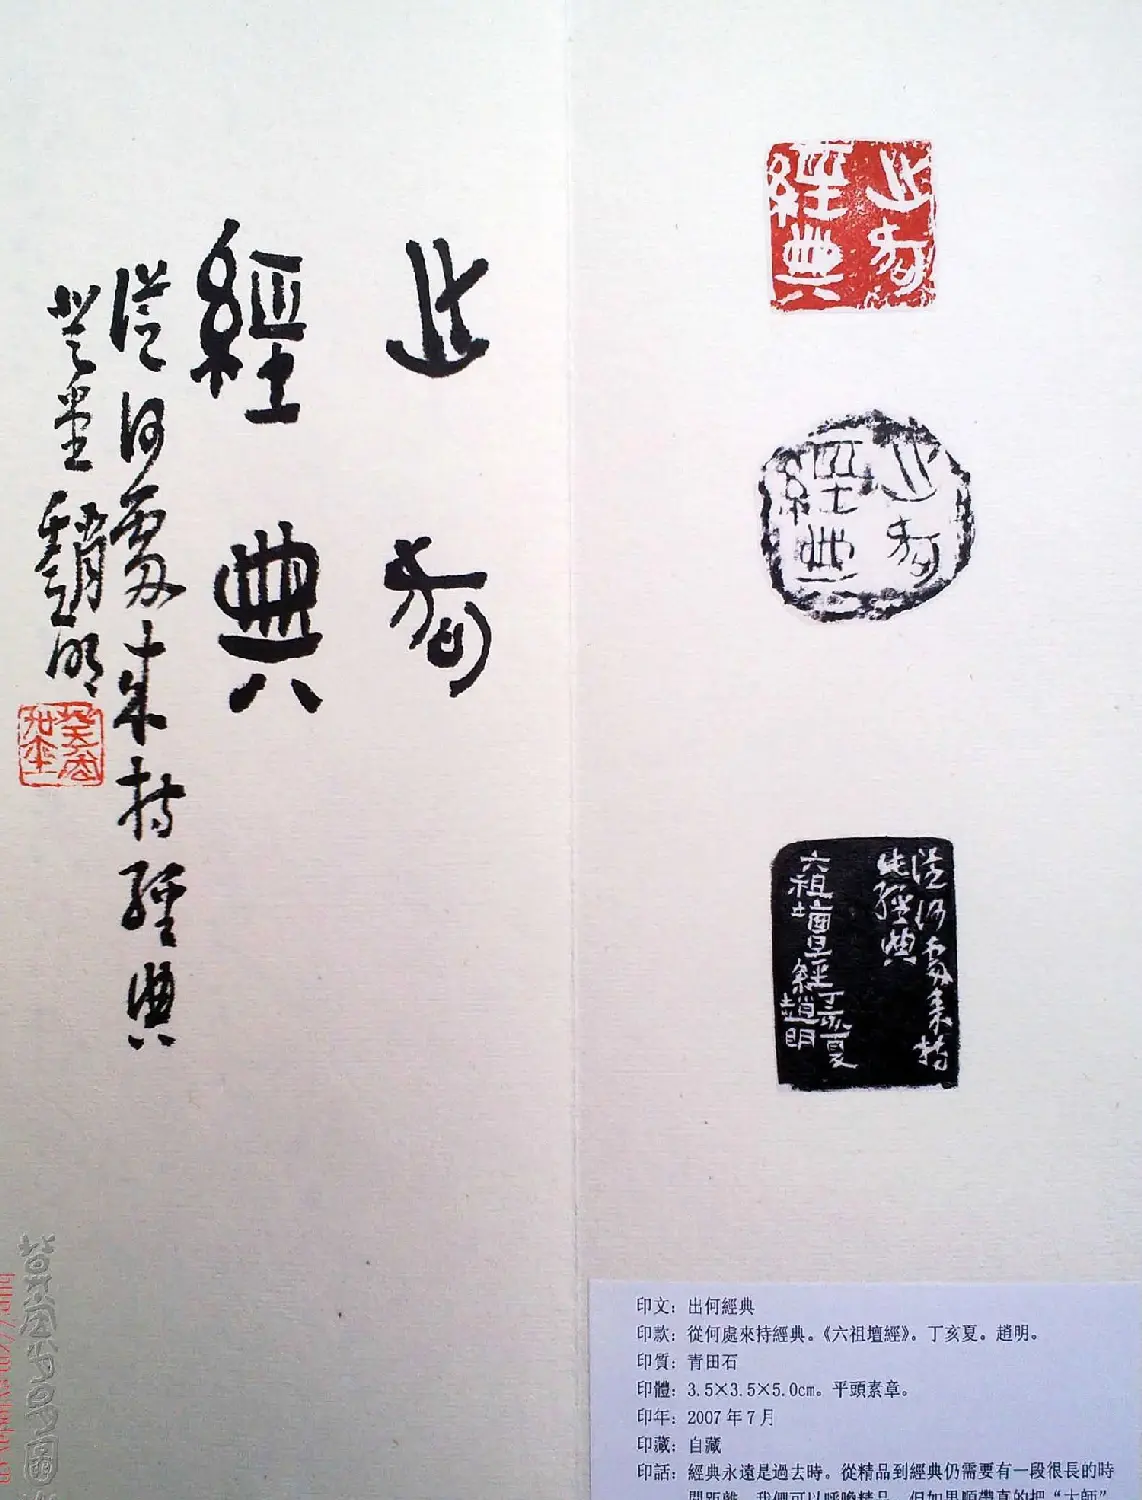 出何
經典
從何處來持經典
趙明
出何
經典
出何
經典
從何處來持
此經典
六祖壇經
丁亥夏
趙明
印文：出何經典
印款：從何處來持經典。《六祖壇經》。丁亥夏。趙明。
印質：青田石
印體：3.5×3.5×5.0cm。平頭素章。
印年：2007年7月
印藏：自藏
印話：經典永遠是過去時。從精品到經典仍需要有一段很長的時
間距離。我們可以呼喚精品，但如果順帶真的把“大師”